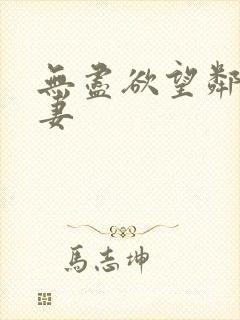 無盡欲望鄰
妻
馬志坤